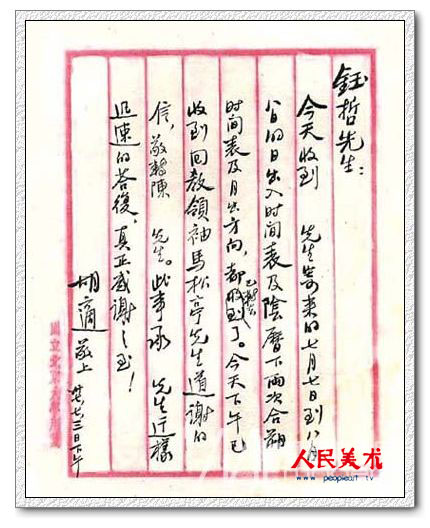 鈺哲先生:
今天收到 先生寄来的七月七日到八月
八日的日出入时间表及陰曆下兩次合朔
时间表及月出方向,都收到了。今天下午已
收到回教領袖馬松亭先生道謝的
信,敬轉陳 先生。此事承 先生这樣
迅速的答復,真正感谢之至!
胡適敬上 七三日下午
人民美术
www.peopleart.tv